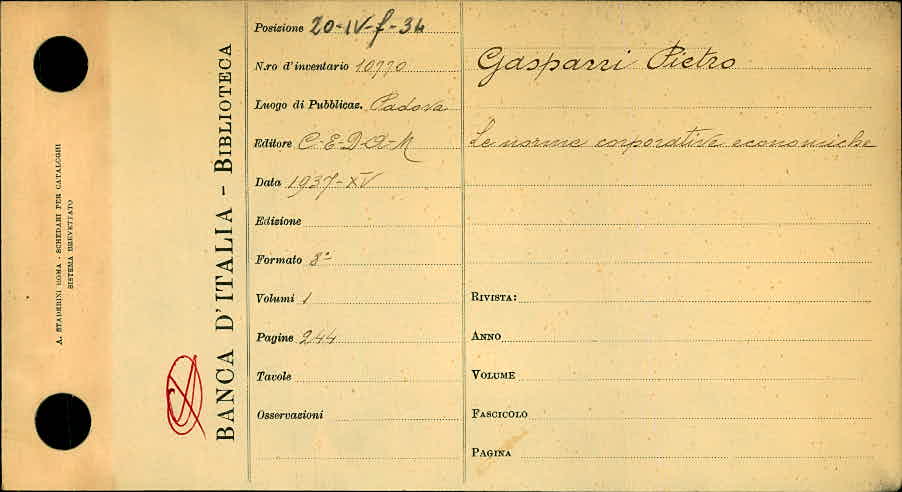 A. STADERINI ROMA - SCHEDARI PER CATALOGHI
SISTEMA BREVETTATO
BANCA D'ITALIA - BIBLIOTECA
Posizione 20-IV-f-34
N.ro d'inventario 10770
Luogo di Pubblicaz. Padova
Editore C-E-D-A-M
Data 1937-XV
Edizione
Formato 8º
Volumi 1
Pagine 244
Tavole
Osservazioni
Gasparri Pietro
Le norme corporative economiche
RIVISTA:
ANNO
VOLUME
FASCICOLO
PAGINA